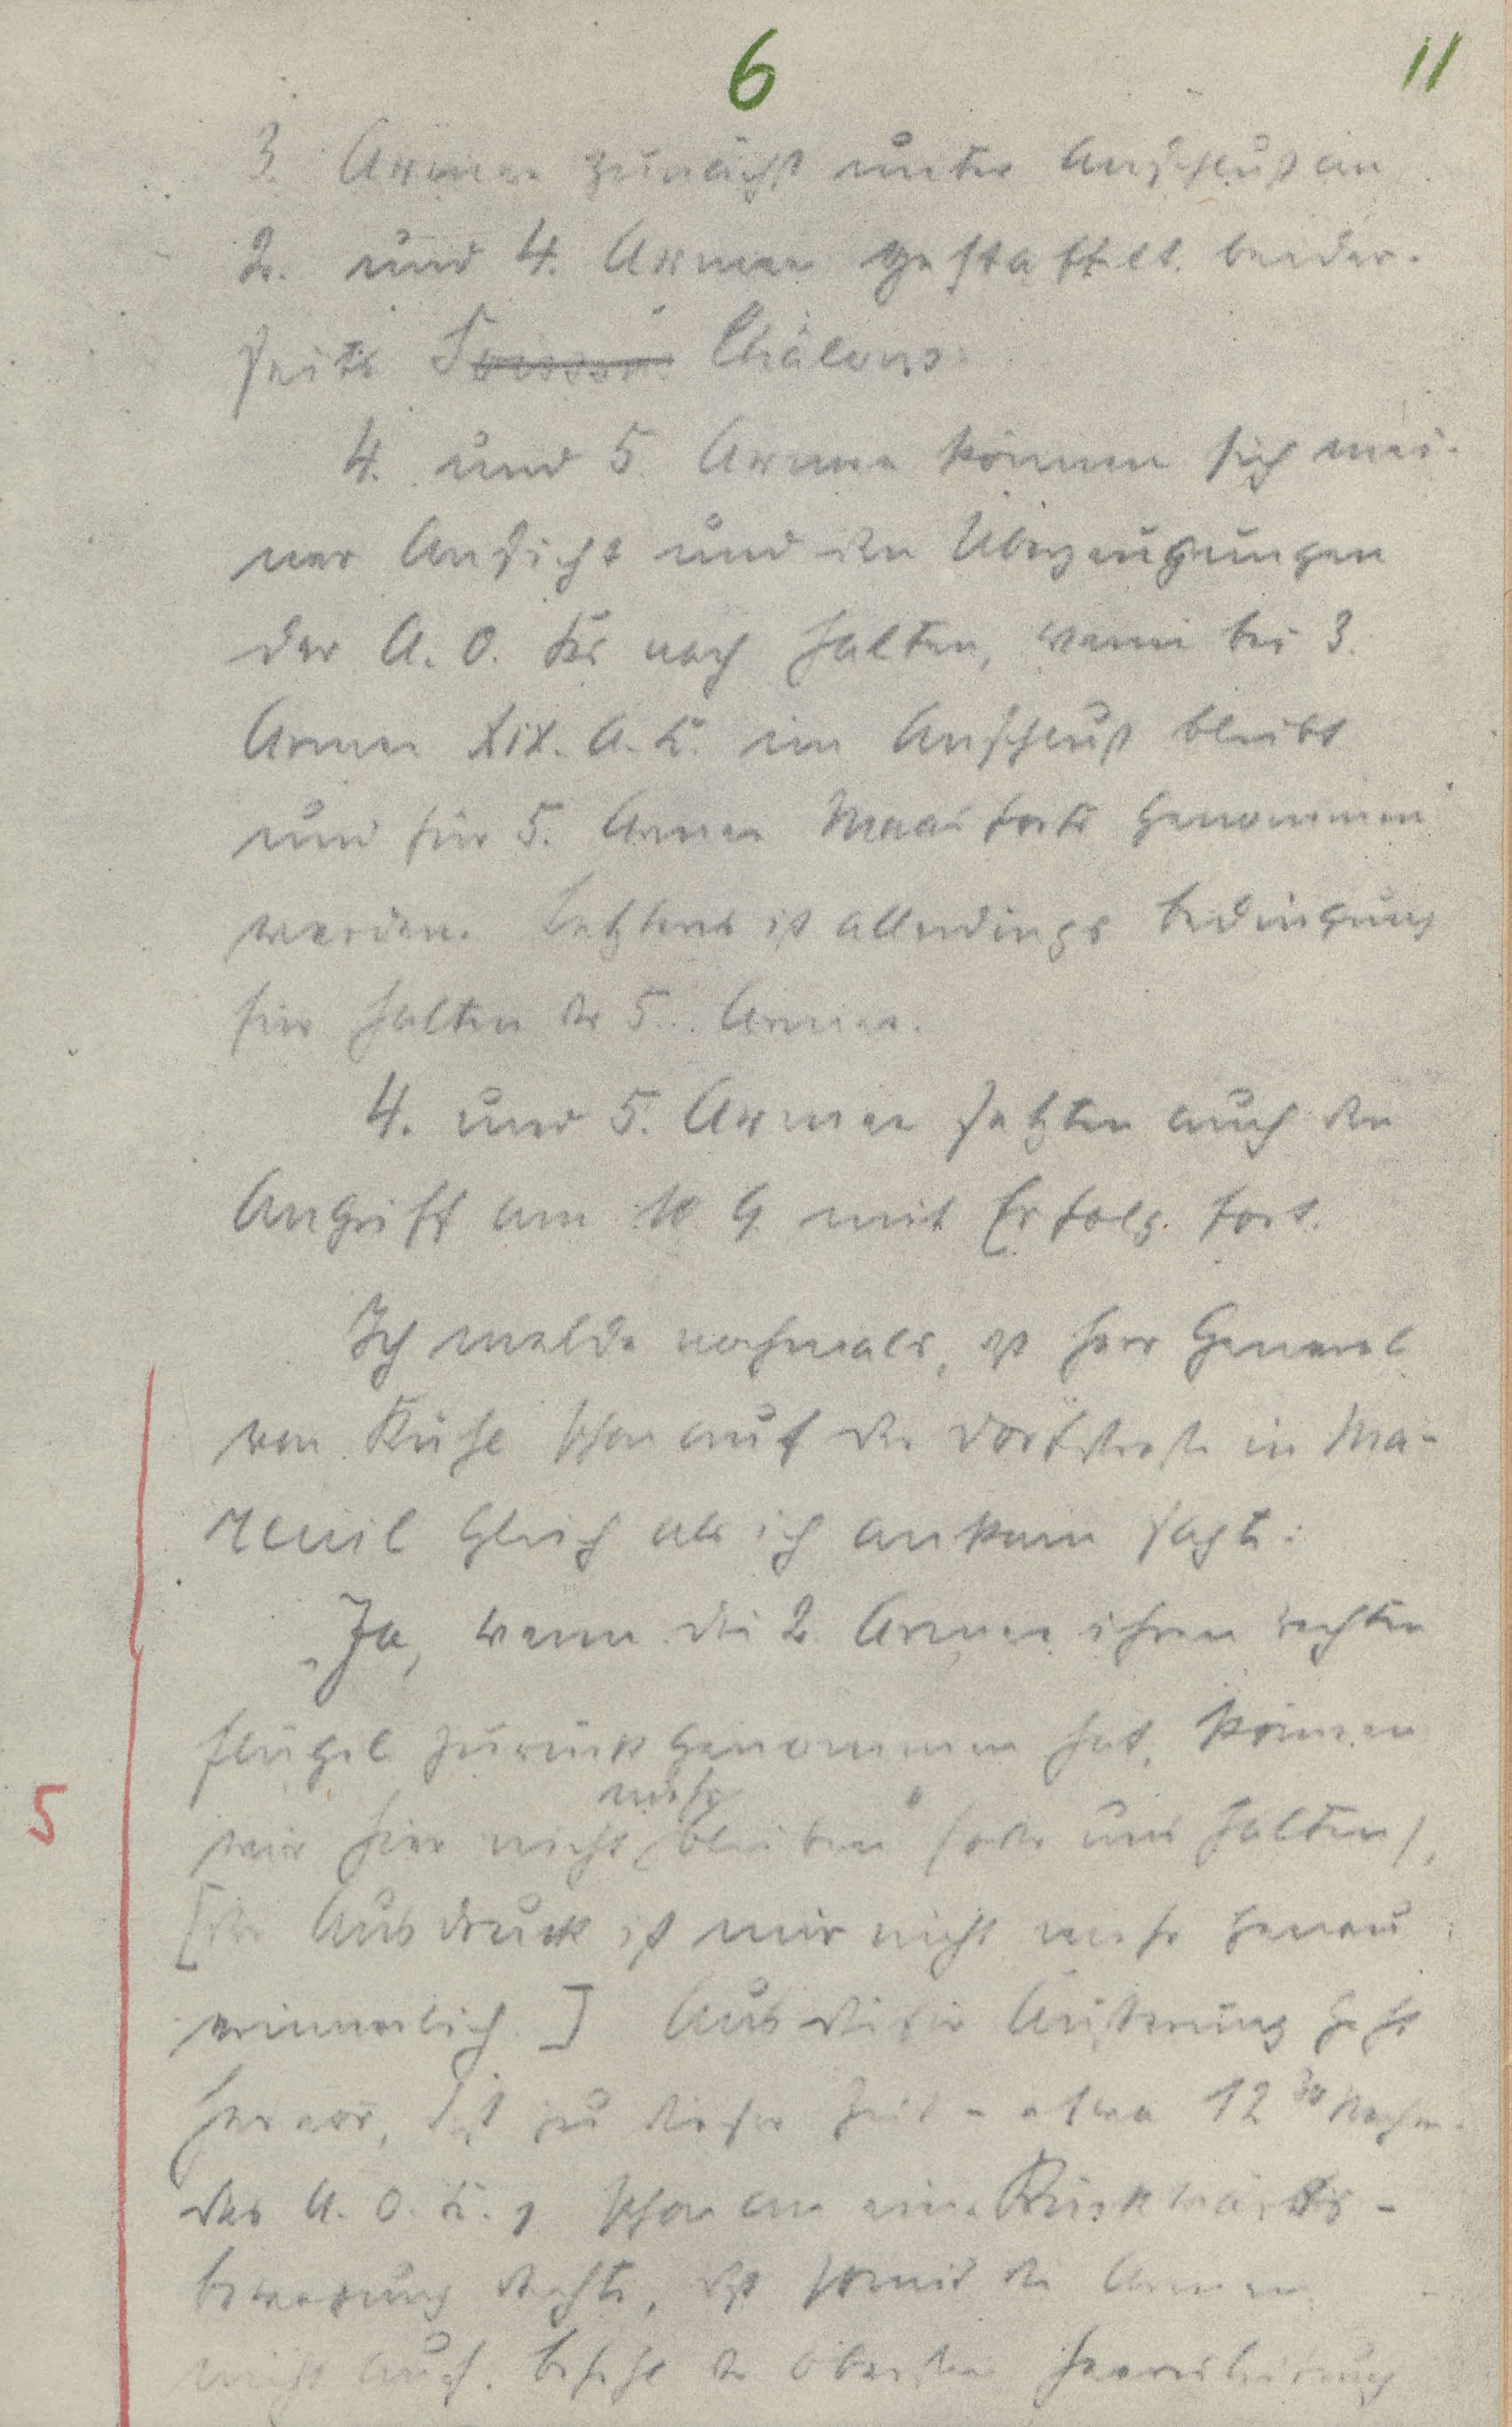 6
11
3. Armee zunächst unter Anschluß an
2. und 4. Armee gestaffelt beider-
seits Soissons Châlons.
4. und 5. Armee können sich mei-
ner Ansicht und den Überzeugungen
der A.O.Ks nach halten, wenn bei 3.
Armee XIX. A.K. im Anschluß bleibt
und für 5. Armee Maasforts genommen
werden. Letzteres ist allerdings Bedingung
für Halten der 5. Armee.
4. und 5. Armee setzten auch den
Angriff am 10. 9. mit Erfolg fort.
Ich melde nochmals, daß Herr General
von Kuhl schon auf der Dorfstraße in Ma-
reuil gleich als ich ankam sagte:
„Ja, wenn die 2. Armee ihren rechten
Flügel zurückgenommen hat, können
mehr
wir hier nicht bleiben" (oder uns halten),
[der Ausdruck ist mir nicht mehr genau
erinnerlich]. Aus dieser Äußerung geht
hervor, daß zu dieser Zeit - etwa 12 30 Nachm.
das A.O.K. 1 schon an eine Rückwärts-
bewegung dachte, daß somit die Armee
nicht auf Befehl der Obersten Heeresleitung